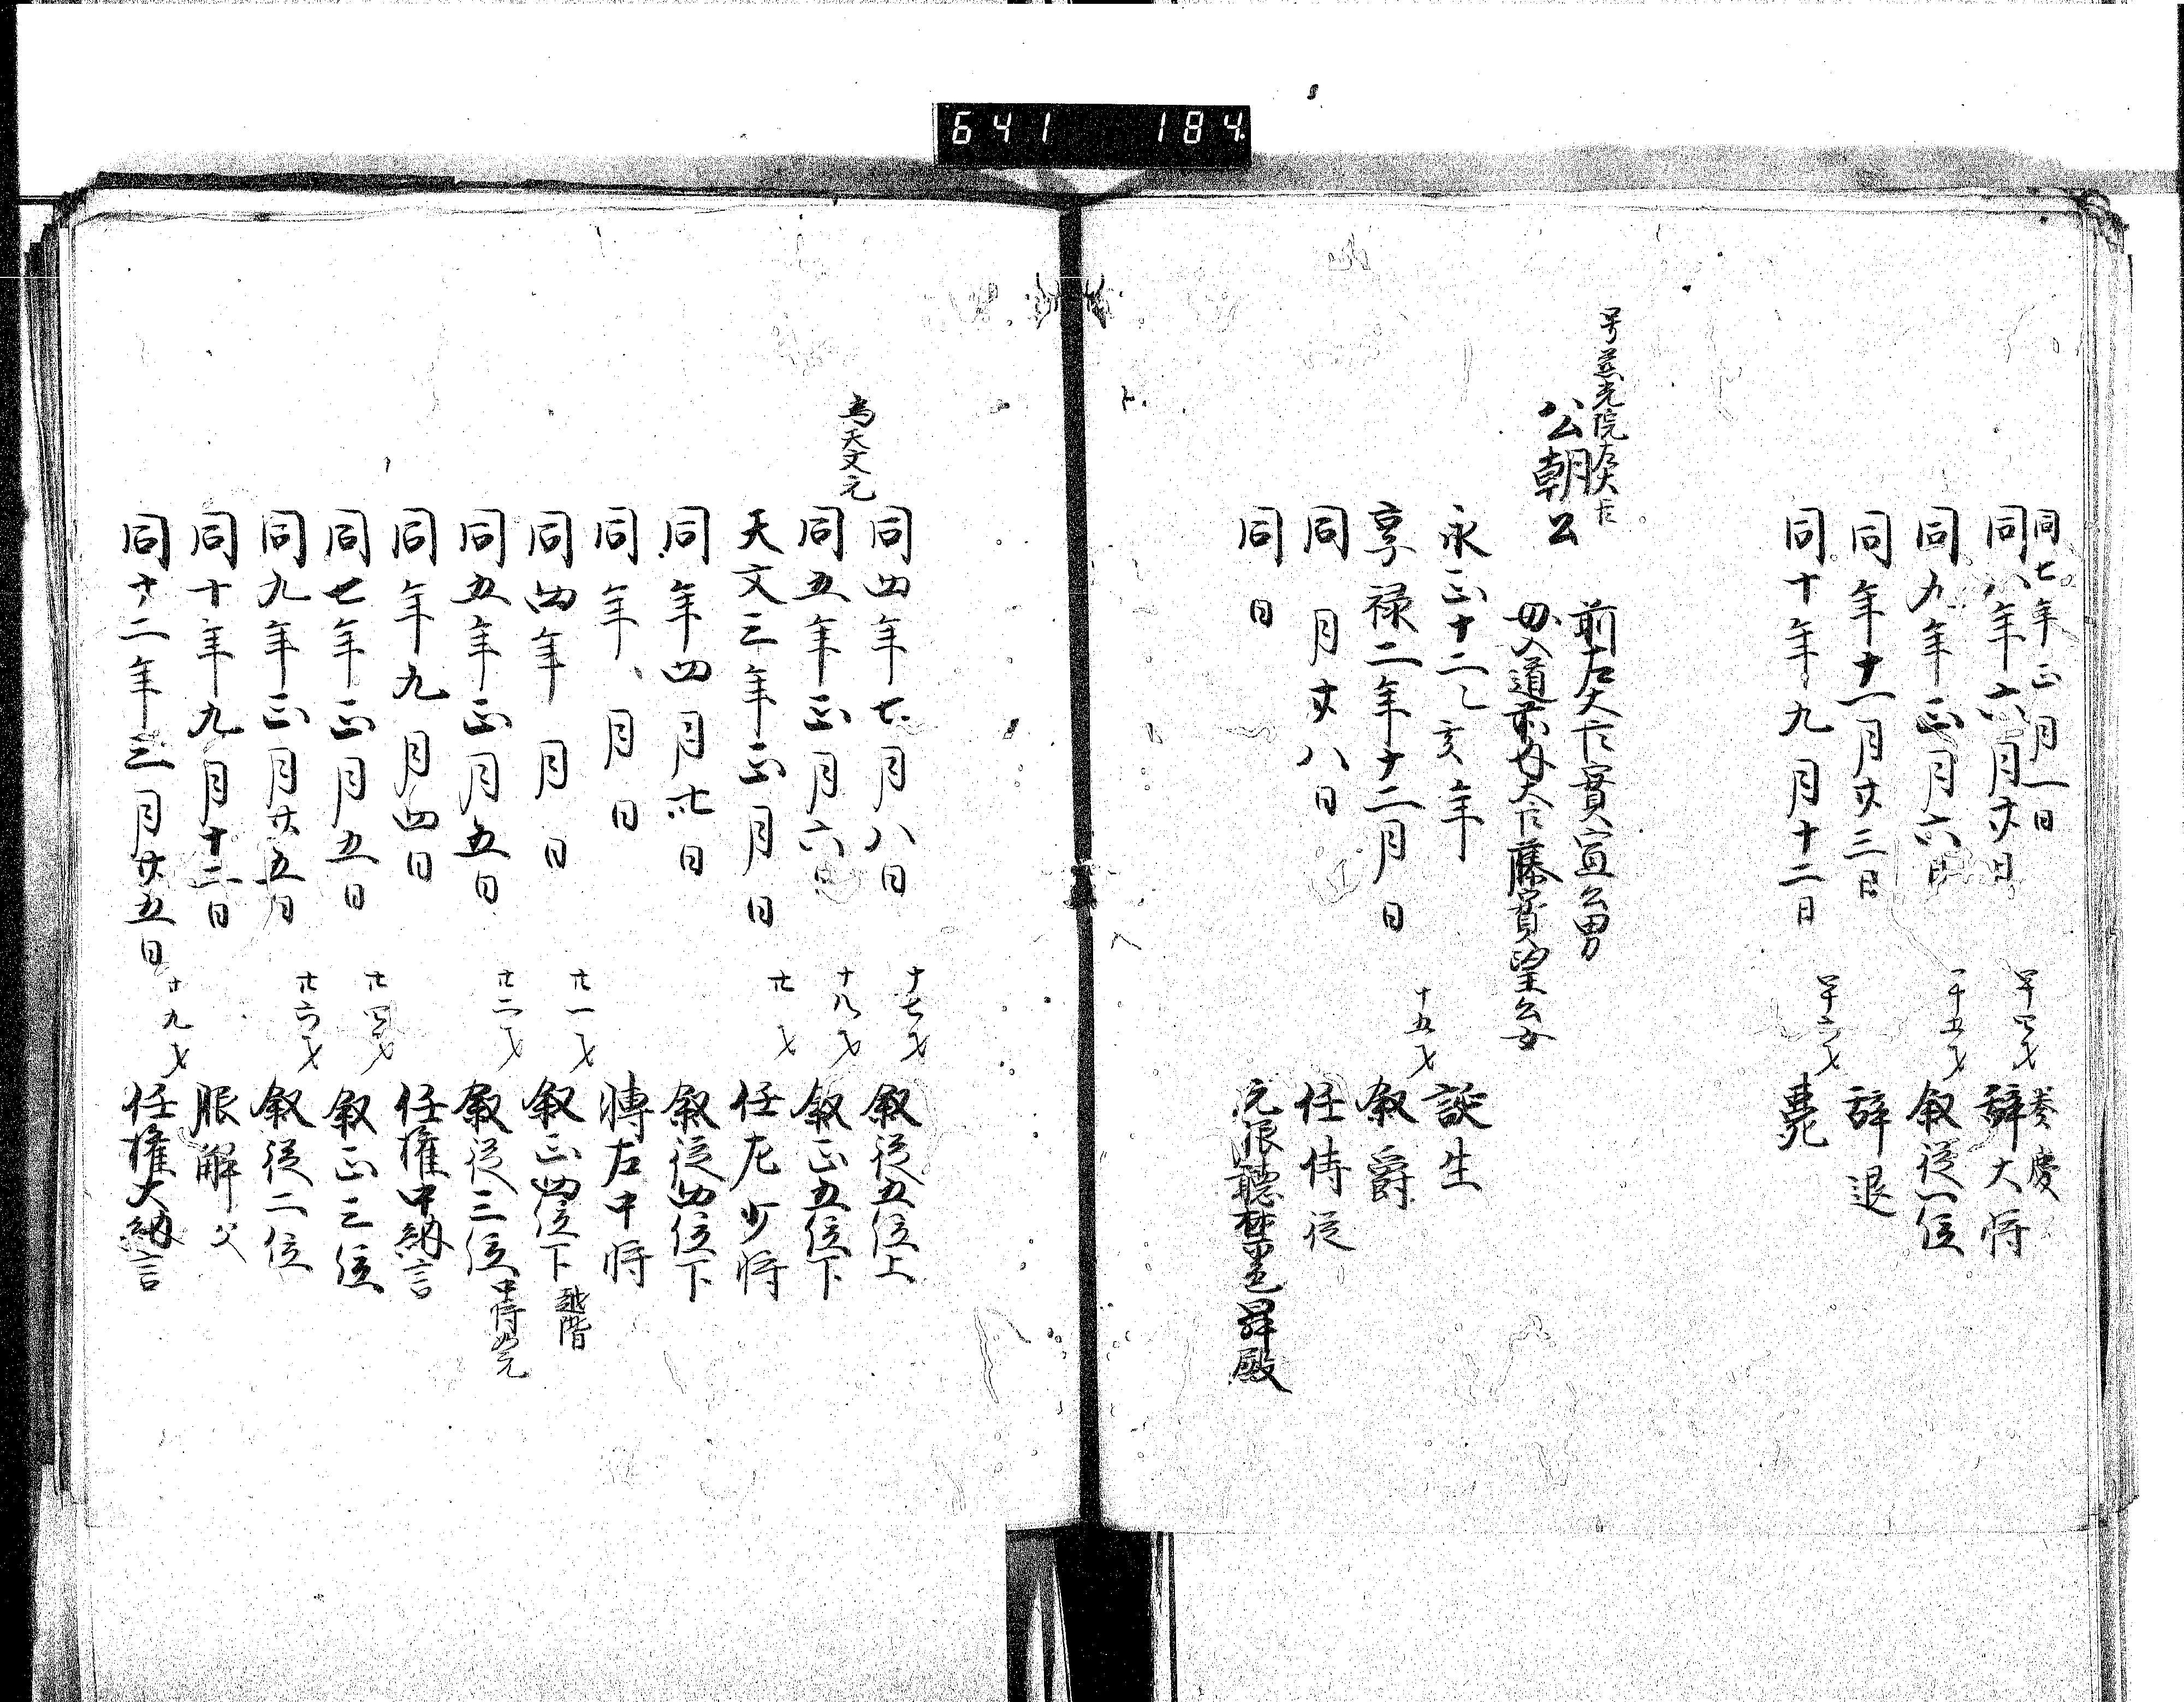 641 184
同七年正月一日 奏慶
同八年六月廿日 四十四才 辞大将
同九年正月六日 四十五才 叙従一位
同年十一月廿三日 辞退
同十年九月十二日 四十六才 薨
号慈光院左大臣
公朝公
前左大臣實宣公男
母入道前内大臣藤實望公女
永正十二乙亥年 誕生
享禄二年十二月 日 十五才 叙爵
同 月廿八日 任侍従
同 日 元服聴禁色昇殿
同四年七月八日 十七才 叙従五位上
為天文元
同五年正月六日 十八才 叙正五位下
天文三年正月 日 廿才 任左少将
同年四月廿日 叙従四位下
同年 月 日 轉左中将
同四年 月 日 廿一才 叙正四位下 越階
同五年正月五日 廿二才 叙従三位 中将如元
同年九月四日 任権中納言
同七年正月五日 廿四才 叙正三位
同九年三月廿五日 廿六才 叙従二位
同十年九月十二日 服解 父
同十二年三月廿五日 廿九才 任権大納言